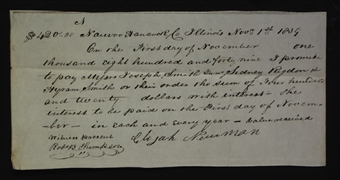 N
$420.00 Nauvoo Hancock Co Illinois Nov. 1st 1839
On the First day of November one
thousand eight hundred and forty nine I promise
to pay Messrs Joseph Smith Sidney Rigdon &
Hyrum Smith or their order the Sum of Four hundred
and twenty dollars with interest - the
interest to be paid on the First day of Novem-
ber - in each and every year - Value received
Witness
Robt B Thompson
Elijah Newman